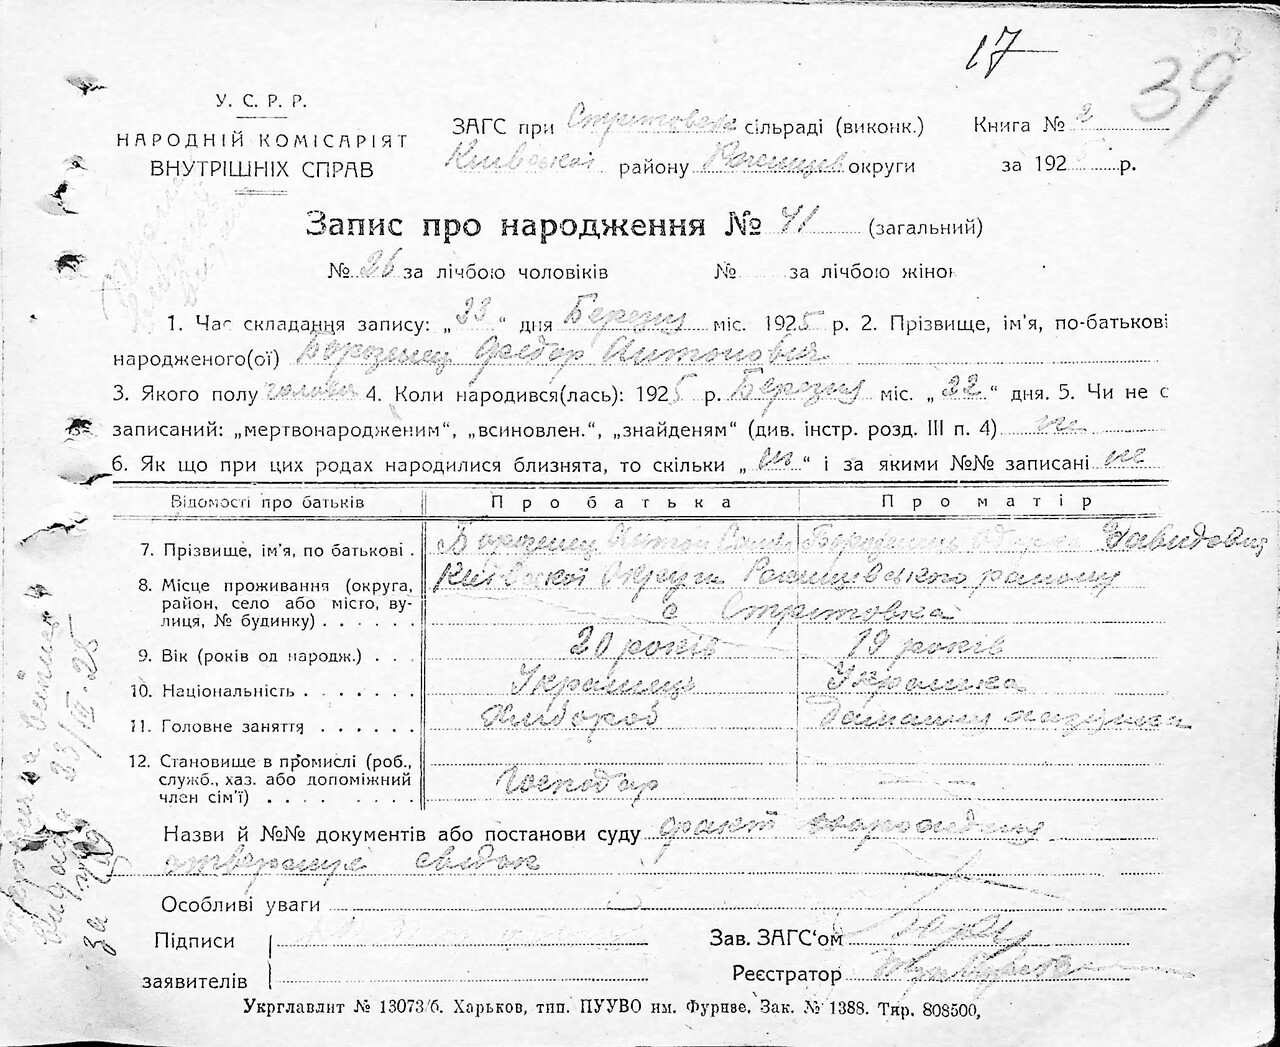 17
39
У. С. Р. Р.
НАРОДНІЙ КОМІСАРІЯТ
ВНУТРІШНІХ СПРАВ
ЗАГС при Стритовск сільраді (виконк.) Книга № 2
Київської району Рогицев округи за 1925 р.
Запис про народження № 41 (загальний)
№ 26 за лічбою чоловіків № за лічбою жінок
1. Час складання запису: „23“ дня Березня міс. 1925 р. 2. Прізвище, ім'я, по-батькові
народженого(ої) Борозенец Федор Антонович
3. Якого полу чоловіч 4. Коли народився(лась): 1925 р. Березня міс. „22“ дня. 5. Чи не є
записаний: „мертвонародженим“, „всиновлен.“, „знайденям“ (див. інстр. розд. III п. 4) ні
6. Як що при цих родах народилися близнята, то скільки „ні“ і за якими №№ записані ні
Відомості про батьків Про батька Про матір
7. Прізвище, ім'я, по батькові Борозенец Антон Борозенець Давидовна
8. Місце проживання (округа, Київської округи району
район, село або місто, ву- с Стритовка
лиця, № будинку)
9. Вік (років од народж.) 20 років 19 років
10. Національність Украінець Украінка
11. Головне заняття Хлібороб Домашня
12. Становище в промислі (роб.,
служб., хаз. або допоміжний Господар —
член сім'ї)
Назви й №№ документів або постанови суду факт народидня
ствержує свідок
Особливі уваги
Підписи Зав. ЗАГС'ом
заявителів Реєстратор
Укрглавлит № 13073/б. Харьков, тип. ПУУВО им. Фрунзе. Зак. № 1388. Тир. 808500,
видана 23/III-25
за №